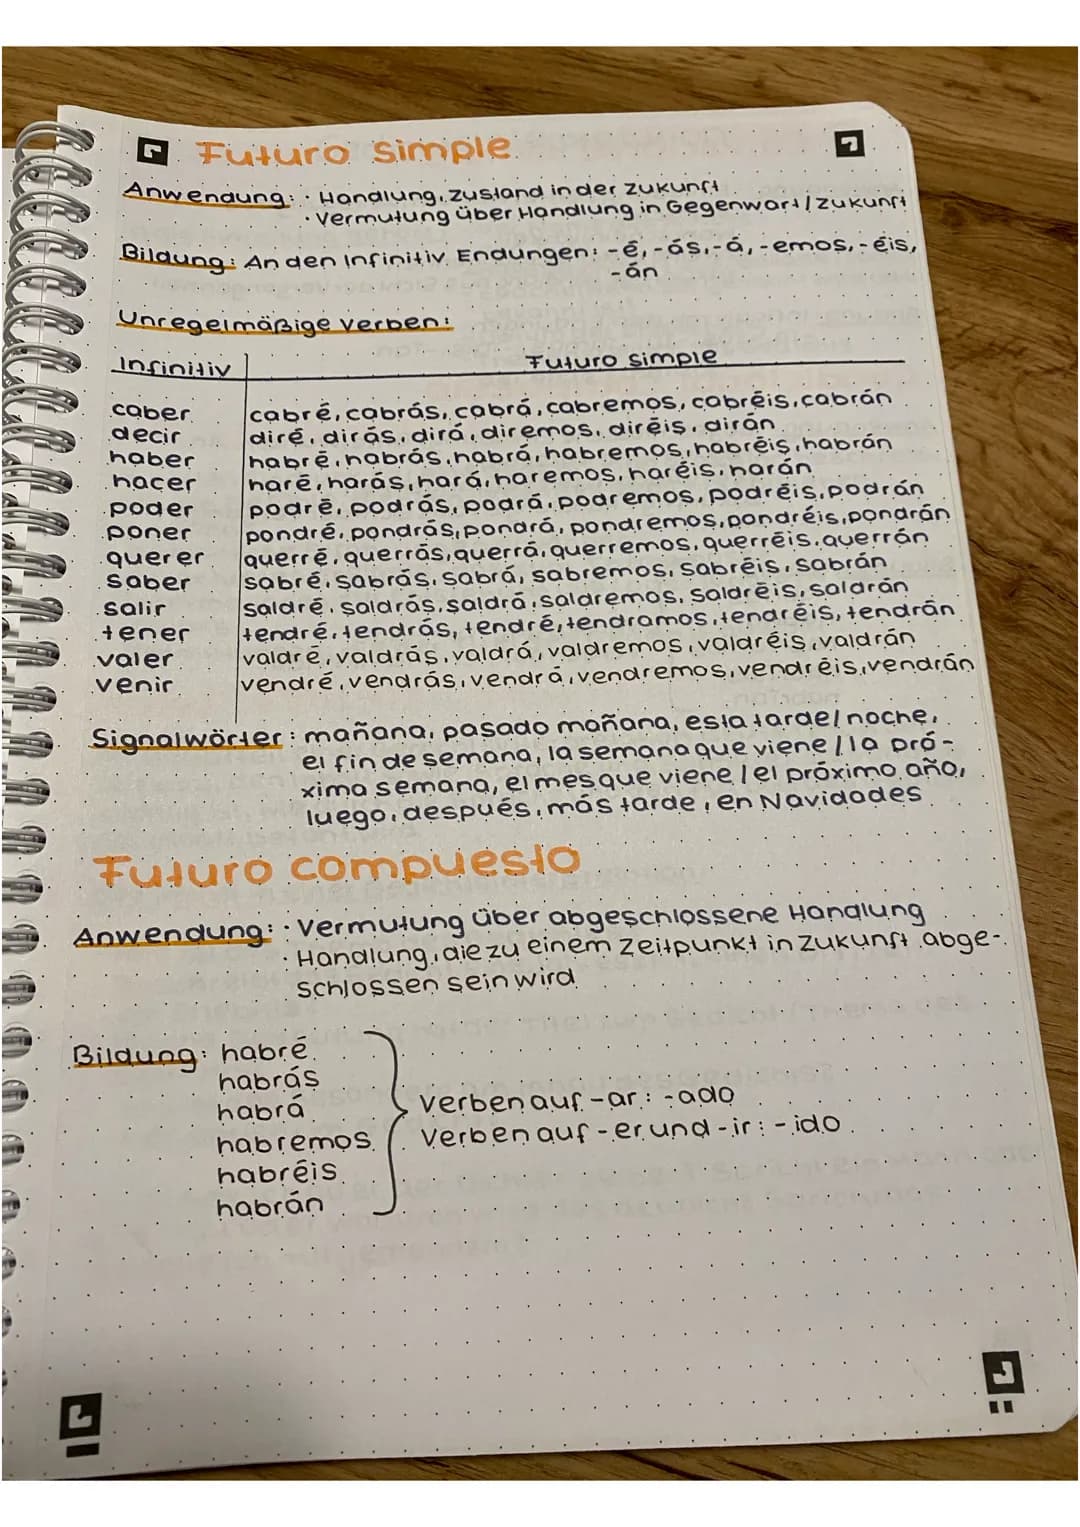 Futuro simple
Anwendung: · Handlung, Zustand in der Zukunft
· Vermutung über Handlung in Gegenwart/Zukunft
Bildung: An den Infinitiv Endungen: -é, -ás, -á, -emos, -éis,
-án
Unregelmäßige Verben:
Infinitiv Futuro simple
caber cabré, cabrás, cabrá, cabremos, cabréis, cabrán
decir diré, dirás, dirá, diremos, diréis, dirán
haber habré, habrás, habrá, habremos, habréis, habrán
hacer haré, harás, hará, haremos, haréis, harán
poder podré, podrás, podrá, podremos, podréis, podrán
poner pondré, pondrás, pondrá, pondremos, pondréis, pondrán
querer querré, querrás, querrá, querremos, querréis, querrán
saber sabré, sabrás, sabrá, sabremos, sabréis, sabrán
salir saldré, saldrás, saldrá, saldremos, saldréis, saldrán
tener tendré, tendrás, tendré, tendramos, tendréis, tendrán
valer valdré, valdrás, valdrá, valdremos, valdréis, valdrán
venir vendré, vendrás, vendrá, vendremos, vendréis, vendrán
Signalwörter: mañana, pasado mañana, esta tarde/noche,
el fin de semana, la semana que viene / la pró-
xima semana, el mes que viene / el próximo año,
luego, después, más tarde, en Navidades
Futuro compuesto
Anwendung: · Vermutung über abgeschlossene Handlung
· Handlung, die zu einem Zeitpunkt in Zukunft abge-
schlossen sein wird
Bildung: habré
habrás
habrá Verben auf -ar: -ado
habremos Verben auf -er und -ir: -ido
habréis
habrán